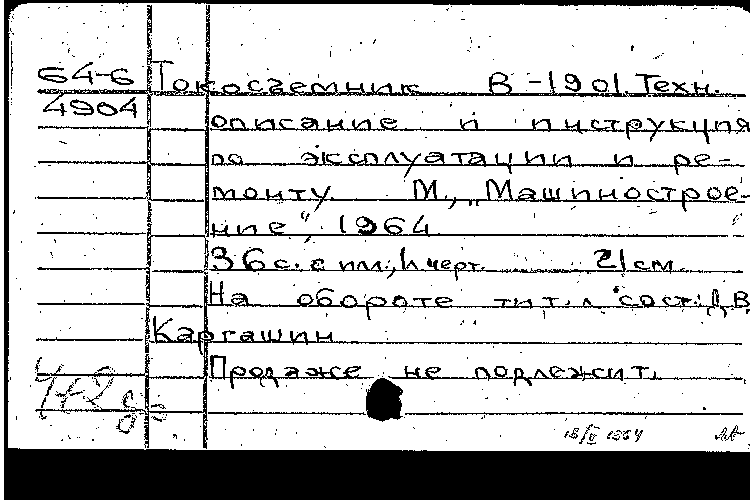 64-6 Токосъемник В-1901. Техн.
4904 описание и инструкция
по эксплуатации и ре-
монту. М., „Машинострое-
ние", 1964.
36 с. с илл., 1 черт. 21 см.
На обороте тит. л. сост.: Д. В.
Каргашин
Продаже не подлежит.